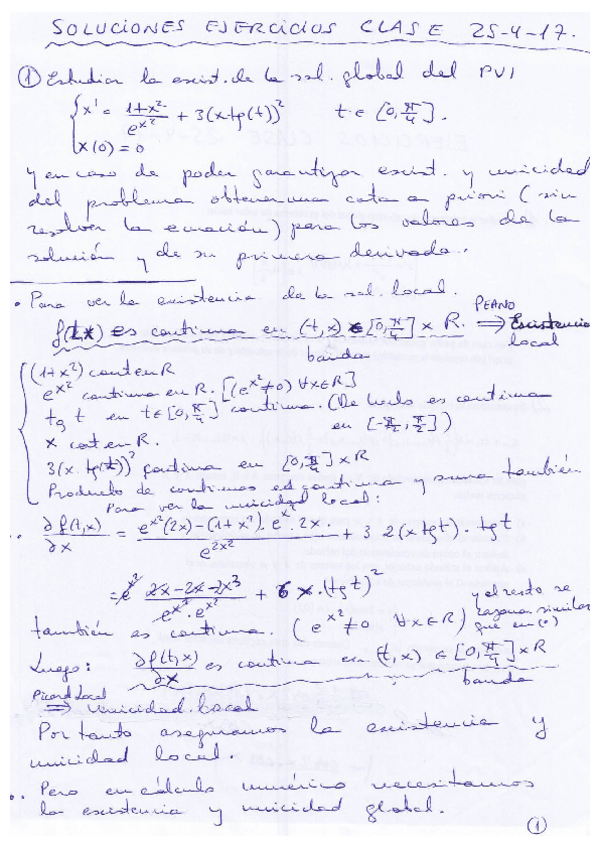 SOLUCIONES EJERCICIOS CLASE 25-4-17.
① Estudiar la exist. de la sol. global del PVI
{ x' = (1+x²)/e^(x²) + 3(x·tg(t))²    t ∈ [0, π/4].
x(0) = 0
y en caso de poder garantizar exist. y unicidad
del problema obtener una cota a priori (sin
resolver la ecuación) para los valores de la
solución y de su primera derivada.
• Para ver la existencia de la sol. local.
f(t,x) es continua en (t,x) ∈ [0, π/4] × R. PEANO ⟹ Existencia local
banda
(1+x²) cont en R
e^(x²) continua en R. [(e^(x²) ≠ 0) ∀x∈R]
tg t en t∈[0, π/4] continua. (De hecho es continua
en [-π/2, π/2])
x cont en R.
3(x·tg(t))² continua en [0, π/4] × R
Producto de continuas es continua y suma también
Para ver la unicidad local:
∂f(t,x)/∂x = (e^(x²)(2x) - (1+x²)·e^(x²)·2x)/e^(2x²) + 3·2(x tg t)·tg t
= e^(x²) (2x-2x-2x³)/(e^(x²)·e^(x²)) + 6x·(tg t)²
también es continua. (e^(x²) ≠ 0 ∀x∈R) y el resto se razona similar que en (·)
Luego: ∂f(t,x)/∂x es continua en (t,x) ∈ [0, π/4] × R
banda
Picard Local ⟹ unicidad local
Por tanto aseguramos la existencia y
unicidad local.
•• Pero en cálculo numérico necesitamos
la existencia y unicidad global.
①